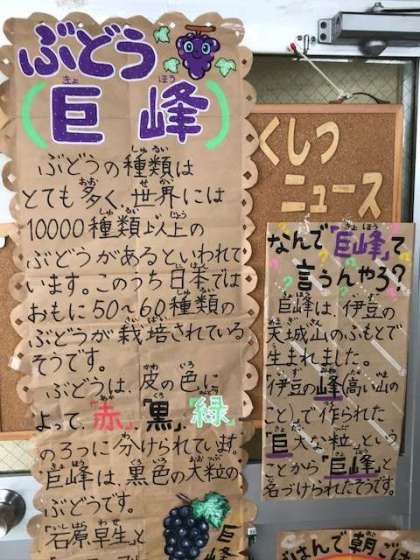 ぶどう
(巨峰)
ぶどうの種類は
とても多く、世界には
10000種類以上の
ぶどうがあるといわれて
います。このうち日本では
おもに50~60種類の
ぶどうが栽培されている
そうです。
ぶどうは、皮の色に
よって、「赤」「黒」「緑」
の3つに分けられています。
巨峰は、黒色の大粒の
ぶどうです。
「石原早生」と
巨峰
くしつ
ニュース
なんで「巨峰」て
言うんやろ?
巨峰は、伊豆の
天城山のふもとで
生まれました。
伊豆の峰(高い山の
こと)で作られた
「巨大な粒」という
ことから「巨峰」と
名づけられたそうです。
はんで朝ご